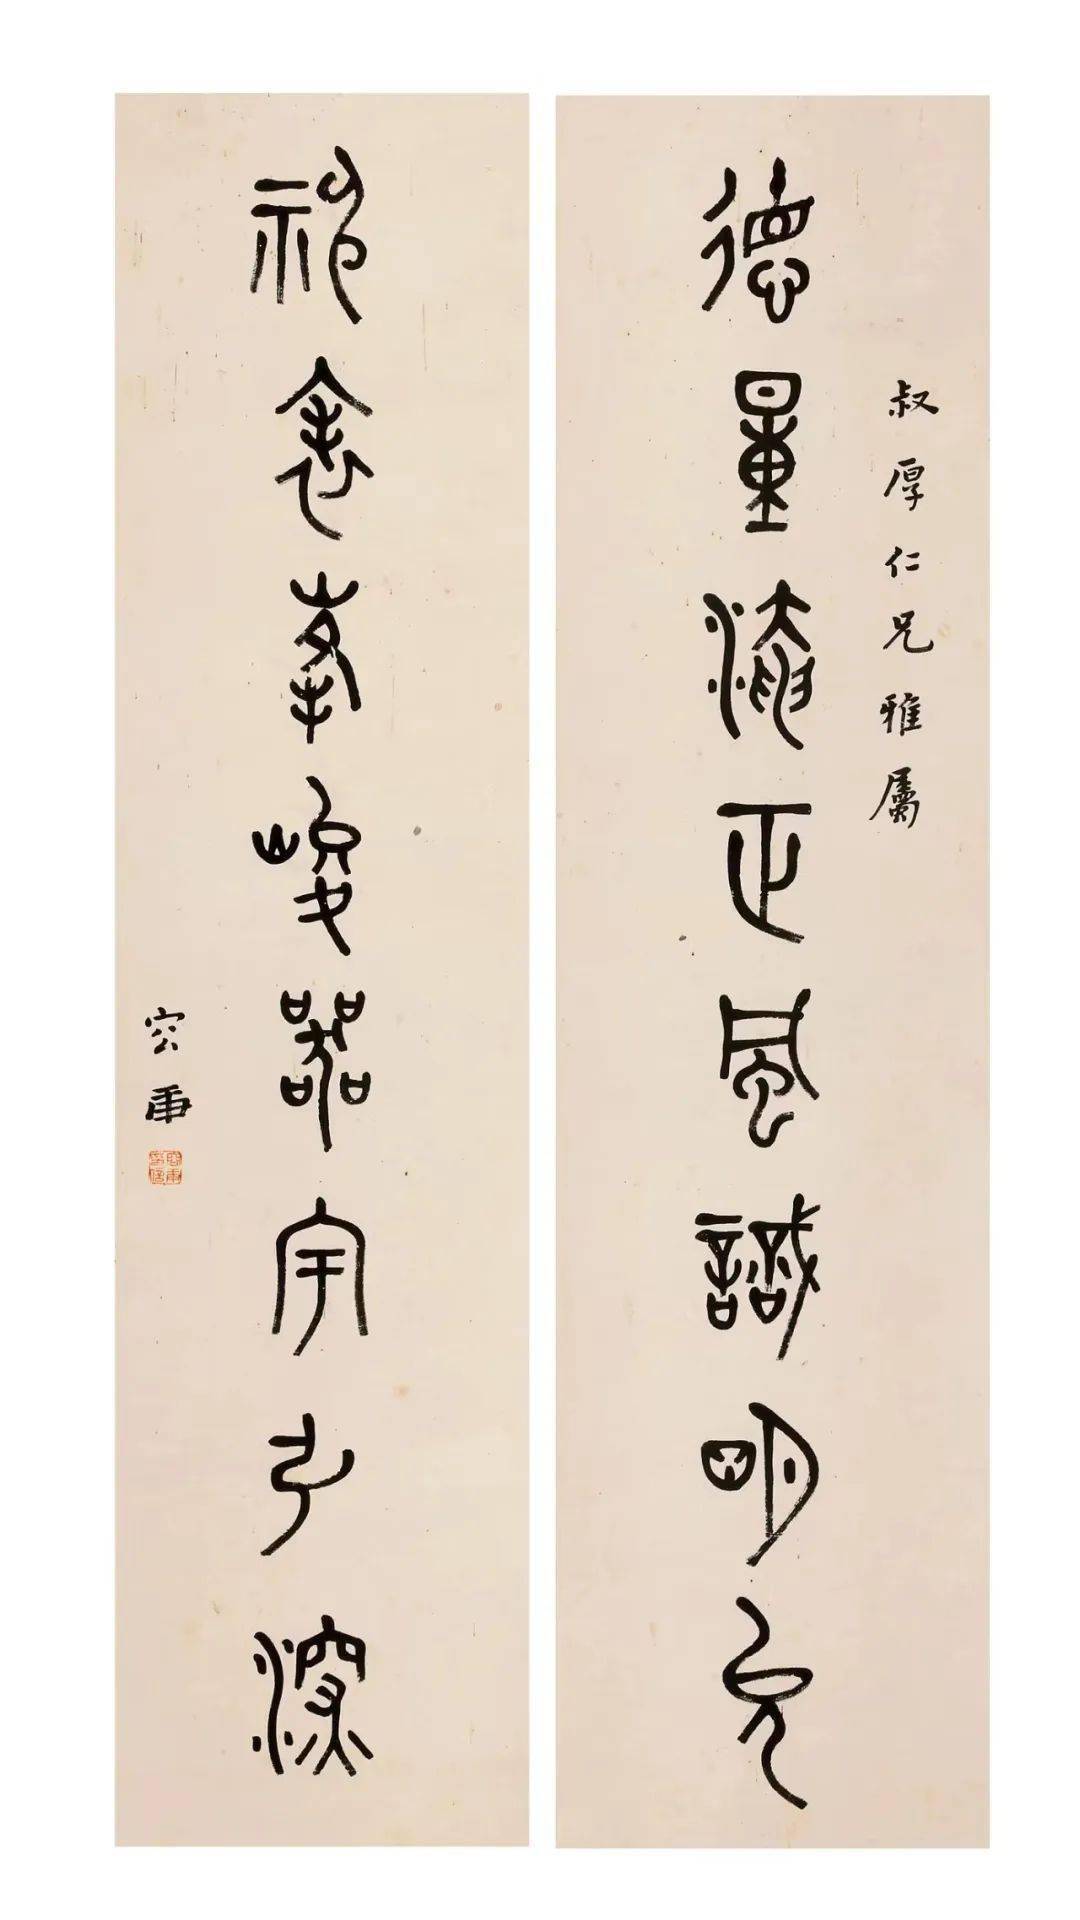 叔厚仁兄雅屬
德量淹正風識明允
神衾峯峻器宇弘深
容庚